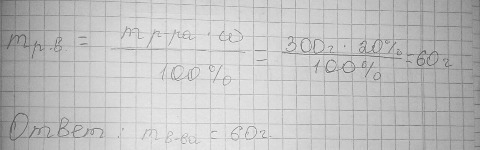 m р.в = m р-ра · ω / 100% = 300г · 20% / 100% = 60г
Ответ: m в-ва = 60г.